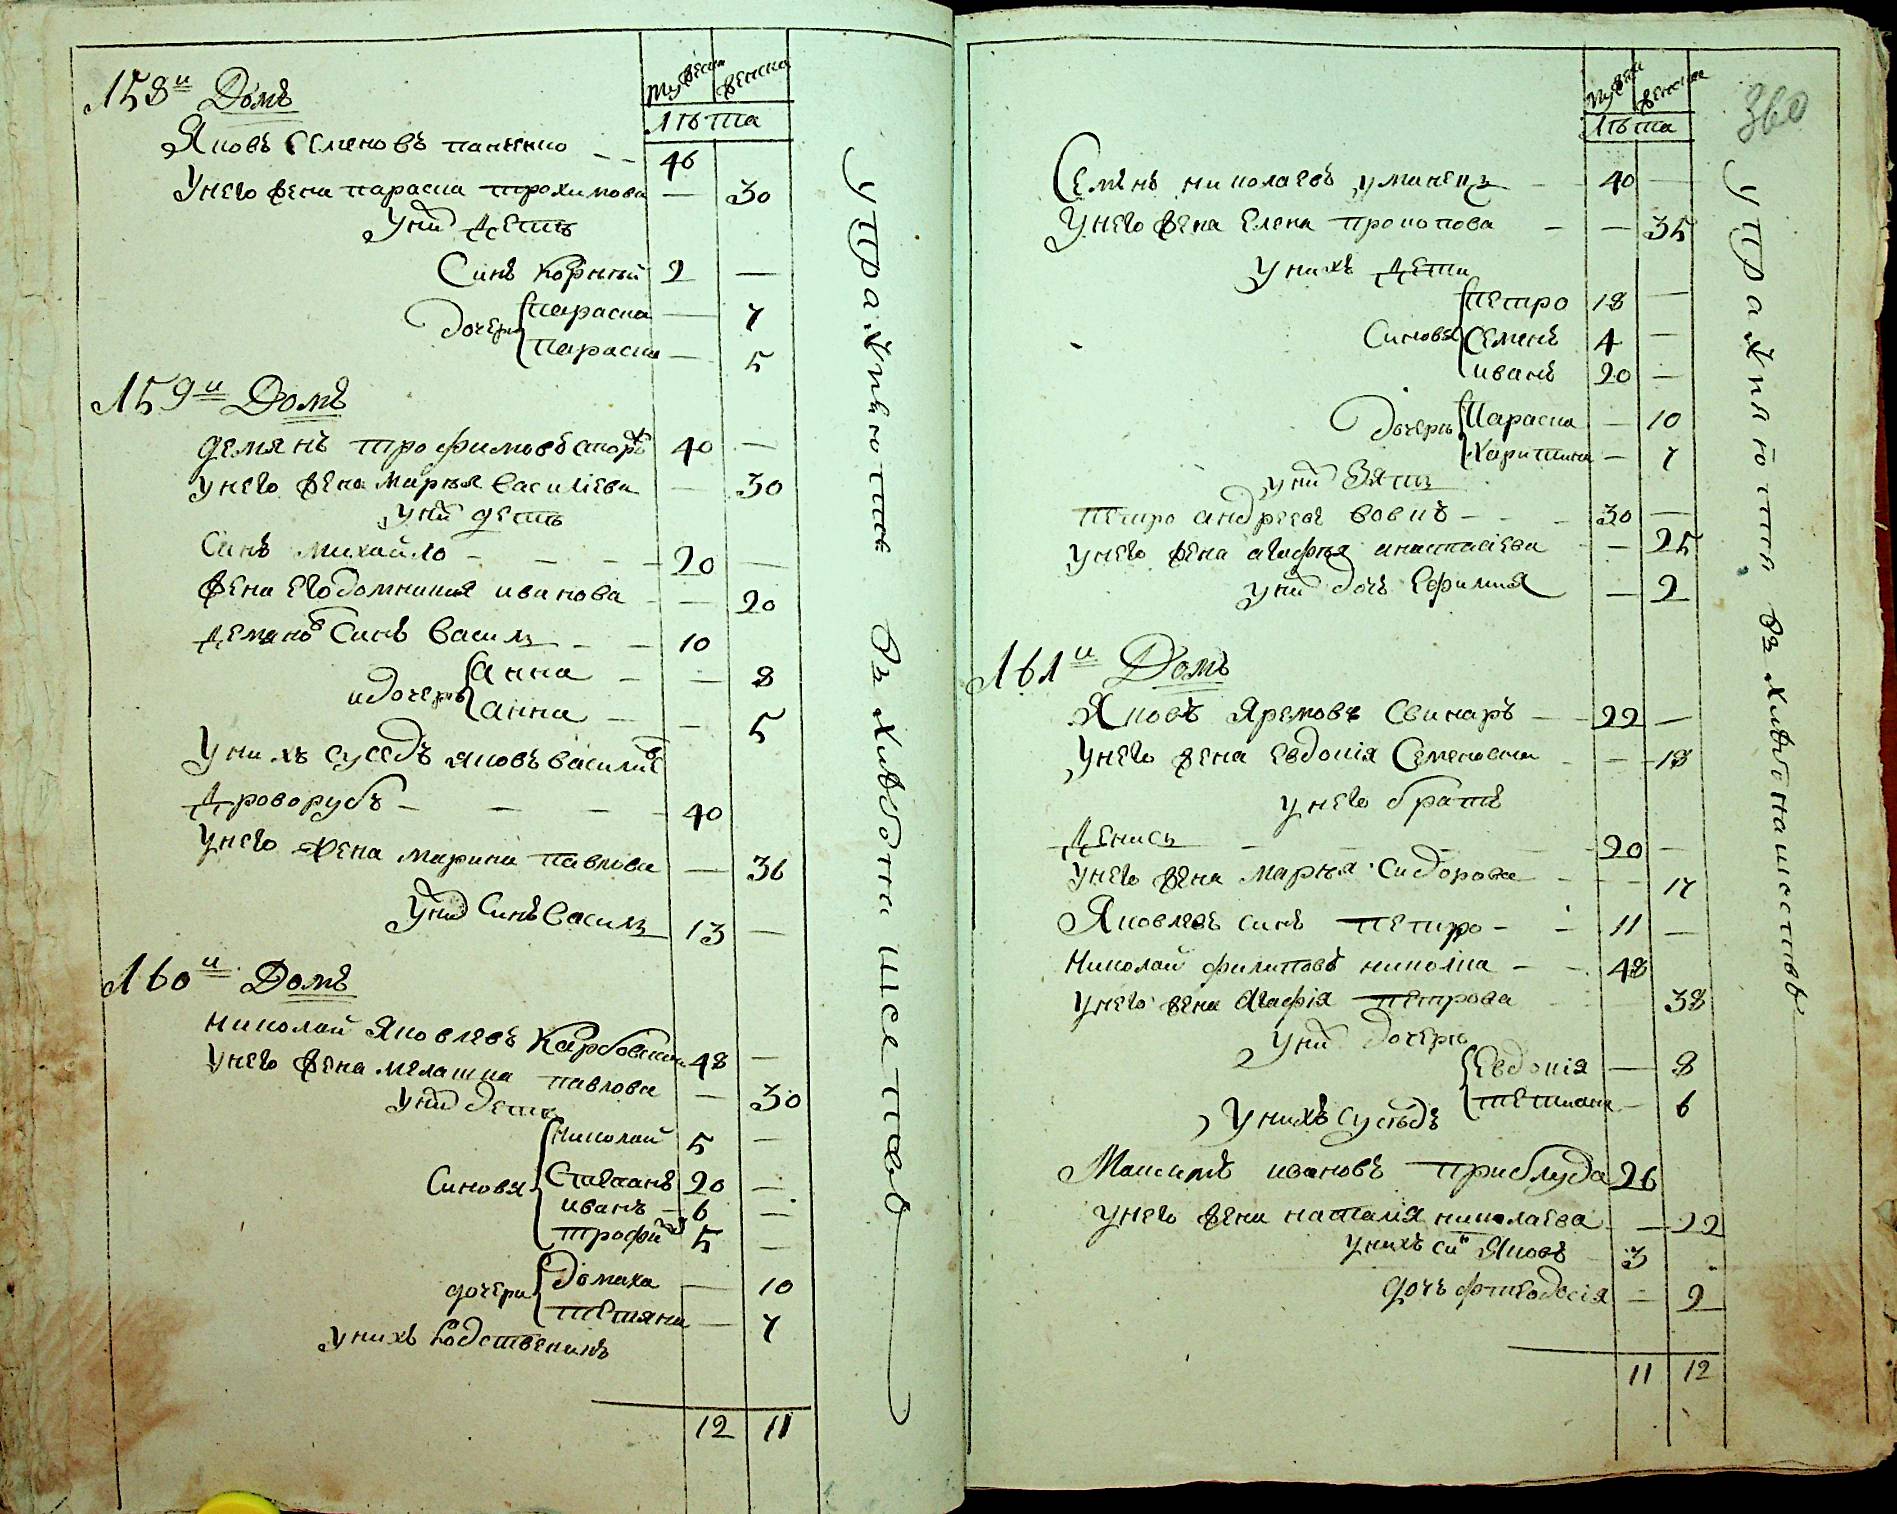 мужеска женска
лѣта
158й Домъ
Яковъ Семеновъ панченко — — 46
У него жена параска трохимова — 30
У них дети
Синъ корный 2 —
дочери параска — 7
параска — 5
159й Домъ
демянъ трофимовъ 40 —
у него жена марья василіева — 30
у них дети
Синъ михайло — — — 20 —
жена его домникия иванова — — 20
демяновъ Синъ василь — — 10
и дочери анна — — 8
анна — — 5
У нихъ суседъ яковъ василиев
дроворубъ — — — — 40
У него жена марина павлова — 36
У них Синъ василь 13 —
160й Домъ
николай Яковлевъ 48 —
У него жена мелашка павлова — 30
У них дети
николай 5 —
Синовя Степанъ 20 —
иванъ — 6 —
трофим 5 —
дочери домаха — 10
тетяна — 7
у нихъ родственикъ
12 11
упражняются въ хлѣбопашествѣ
360
мужеска женска
лѣта
Семѣнъ николаевъ уманецъ — — 40 —
У него жена Елена прокопова — — 35
У нихъ дети
петро 18 —
Синовя Семенъ 4 —
иванъ 20 —
дочери Параска — 10
Харитина — 7
у них зять
петро андреевъ вовкъ — — — 30 —
у него жена агафья анастасіева — 25
у них дочь Ефимия — 2
161й Домъ
Яковъ Яремовъ Свинаръ — — 22 —
У него жена евдокія Семеновна — — 18
у него братъ
денисъ — — — — 20 —
У него жена марья Сидорова — — — 17
Яковлевъ синъ петро — — 11 —
николай филиповъ никопка — — 48
У него жена Агафія петрова 38
У них дочери
Евдокія — 8
тетиана — 6
У нихъ сусѣдъ
Максимъ ивановъ приблуда 26
у него жена наталія николаева — 22
у нихъ синъ Яковъ 3
дочъ фтеодосія — 2
11 12
упражняются въ хлѣбопашествѣ